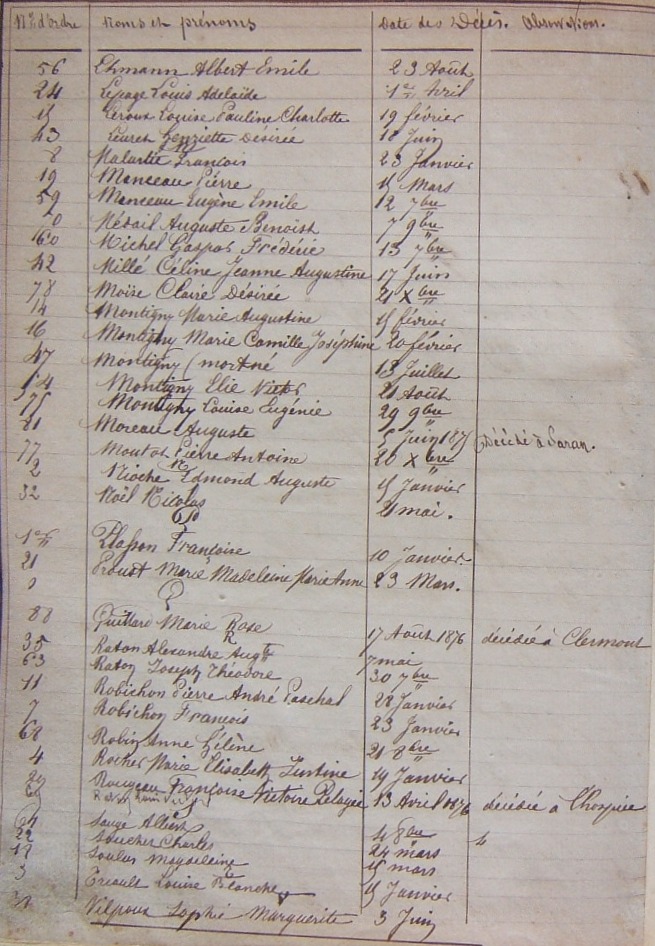 Nos d'ordre Noms et prénoms Date des Décès. Observations.
56 Ehmann Albert Emile 23 Août
24 Lepage Louis Adelaïde 1er Avril
15 Leroux Louise Pauline Charlotte 19 février
43 Leuret Henriette Désirée 18 Juin
M
8 Malartie François 23 Janvier
19 Manceau Pierre 15 Mars
59 Manceau Eugène Emile 12 7bre
Médail Auguste Benoist 7 9bre
60 Michel Gaspar Frédéric 13 7bre
42 Millé Céline Jeanne Augustine 17 Juin
78 Moïse Claire Désirée 21 Xbre
14 Montigny Marie Augustine 15 février
16 Montigny Marie Camille Joséphine 20 février
47 Montigny (mort né 13 Juillet
54 Montigny Elie Victor 21 Août
75 Montigny Louise Eugénie 29 9bre
81 Moreau Auguste 5 Juin 187 Décédé à Saran.
77 Pierre Antoine 20 Xbre
N
2 Nioche Edmond Auguste 15 Janvier
32 Noël Nicolas 21 mai.
P
1er Plasson Françoise 10 Janvier
21 Proust Marie Madeleine Marie Anne 23 Mars.
Q
80 Quillard Marie Rose 17 Août 1876 décédée à Clermont
R
35 Raton Alexandre Augte 7 mai
63 Raton Joseph Théodore 30 7bre
11 Robichon Pierre André Paschal 28 Janvier
7 Robichon François 23 Janvier
68 Robin Anne Hélène 21 8bre
4 Rocher Marie Elisabeth Justine 19 Janvier
29 Rougeau Françoise Victoire Pélagie 13 Avril 1876 décédée à l'hospice
S
64 Sauge Albert 4 8bre
22 Souchet Charles 24 mars
12 Soulas Magdeleine 15 mars
T
3 Triault Louise Blanche 15 Janvier
V
Vilpoux Sophie Marguerite 3 Juin